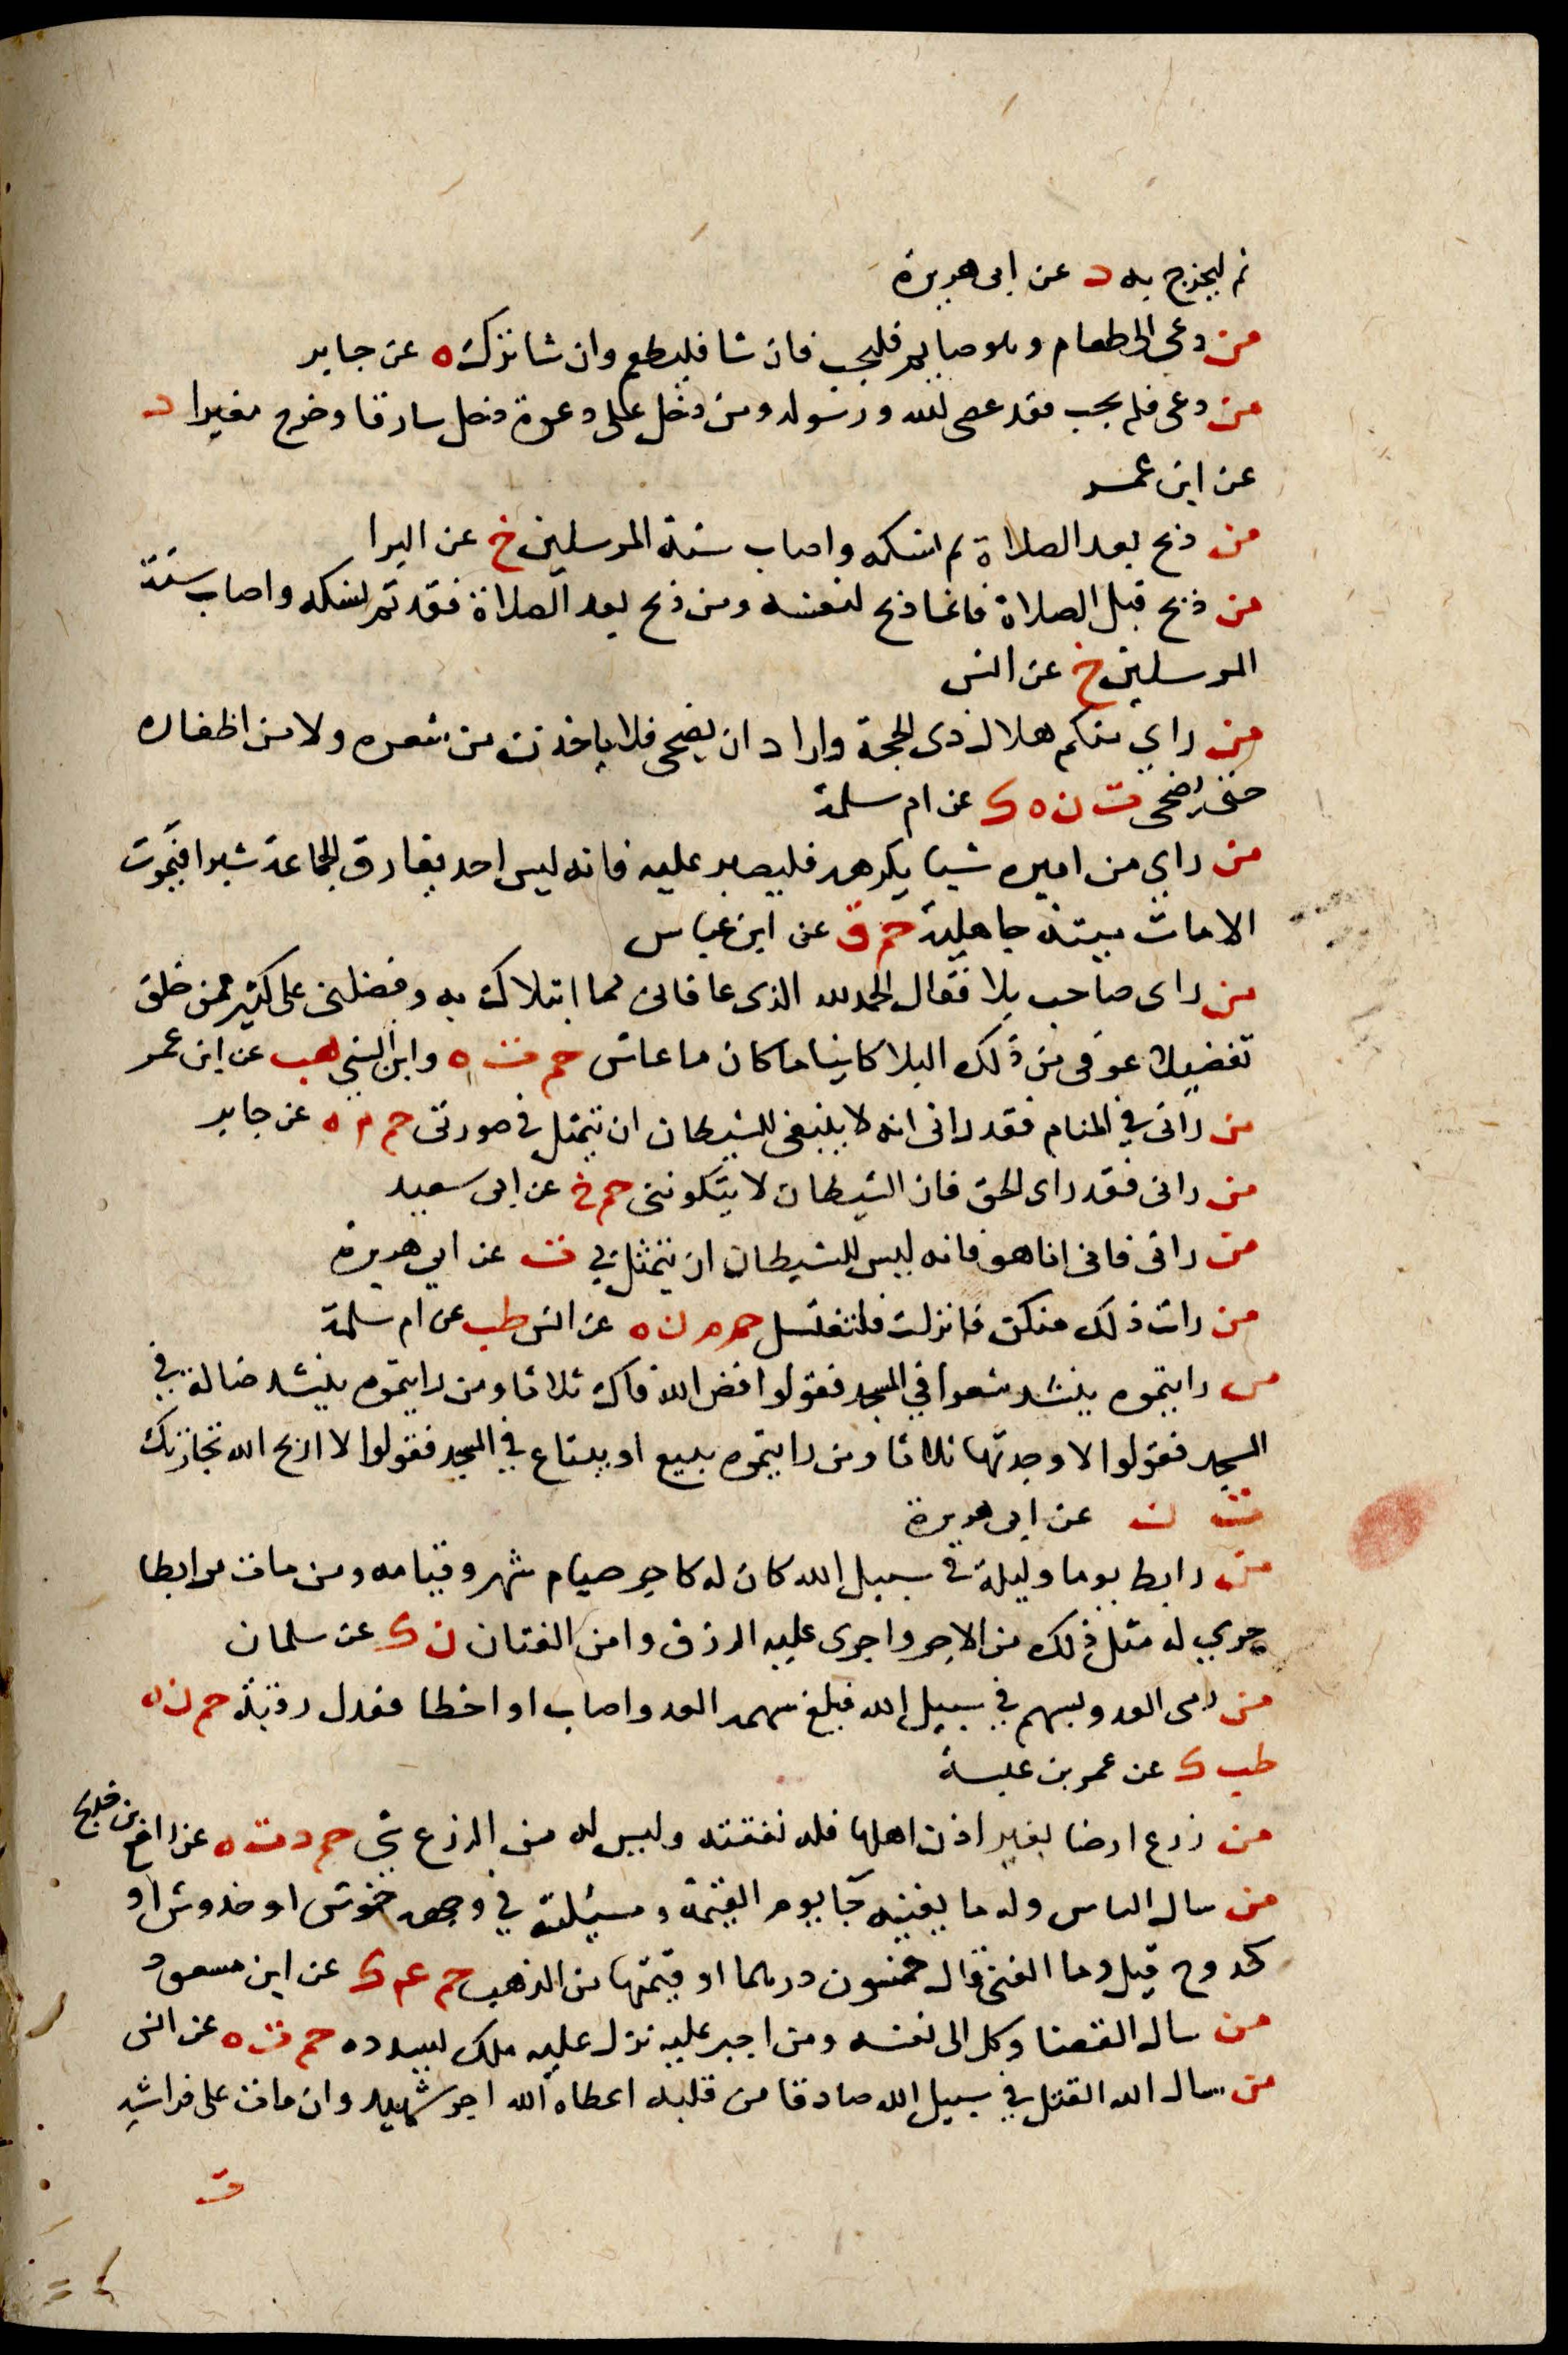 ثم ليخرج به د عن ابى هريرة
من دعى الى طعام وهو صايم فليجب فان شا فليطعم وان شا ترك ه عن جابر
من دعى فلم يجب فقد عصى الله ورسوله ومن دخل على دعوة دخل سارقا وخرج مغيرا د
عن ابن عمر
من ذبح بعد الصلاة تم نسكه واصاب سنة المرسلين خ عن البرا
من ذبح قبل الصلاة فانما ذبح لنفسه ومن ذبح بعد الصلاة فقد تم نسكه واصاب سنة
المرسلين خ عن انس
من راي منكم هلال ذى الحجة واراد ان يضحى فلا ياخذن من شعره ولا من اظفاره
حتى يضحى ت ن ه ك عن ام سلمة
من راي من اميره شيا يكرهه فليصبر عليه فانه ليس احد يفارق الجماعة شبرا فيموت
الا مات ميتة جاهلية حم ق عن ابن عباس
من راى صاحب بلا فقال الحمد لله الذى عافانى مما ابتلاك به وفضلنى على كثير ممن خلق
تفضيلا عوفى من ذلك البلا كاينا ما كان ما عاش حم ت ه وابن السني هب عن ابن عمر
من رانى في المنام فقد رانى انه لا ينبغى للشيطان ان يتمثل في صورتى حم م ه عن جابر
من رانى فقد راى الحق فان الشيطان لا يتكوننى حم خ عن ابى سعيد
من رانى فانى انا هو فانه ليس للشيطان ان يتمثل بي ت عن ابي هريرة
من رات ذلك منكن فانزلت فلتغتسل حم م ن ه عن انس طب عن ام سلمة
من رايتموه ينشد شعرا في المسجد فقولوا فض الله فاك ثلاثا ومن رايتموه ينشد ضالة في
المسجد فقولوا لا وجدتها ثلاثا ومن رايتموه يبيع او يبتاع في المسجد فقولوا لا اربح الله تجارتك
ت ن عن ابى هريرة
من رابط يوما وليلة في سبيل الله كان له كاجر صيام شهر وقيامه ومن مات مرابطا
جري له مثل ذلك من الاجر واجرى عليه الرزق وامن الفتان ن ك عن سلمان
من رمى العدو بسهم في سبيل الله فبلغ سهمه العدو اصاب او اخطا فعدل رقبة حم ن ه
طب ك عن عمر بن عبسة
من زرع ارضا بغير اذن اهلها فله نفقته وليس له من الزرع شي حم د ت ه عن رافع بن خديج
من سال الناس وله ما يغنيه جا يوم القيمة ومسيلته في وجهه خموش او خدوش او
كدوح قيل وما الغنى قال خمسون درهما او قيمتها من الذهب حم ع ك عن ابن مسعود
من سال القضا وكل الى نفسه ومن اجبر عليه نزل عليه ملك ليسدده حم ت ه عن انس
من سال الله القتل في سبيل الله صادقا من قلبه اعطاه الله اجر شهيد وان مات على فراشه
ت